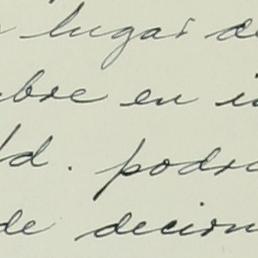 lugar de
bre en i
d. podr
de decirn